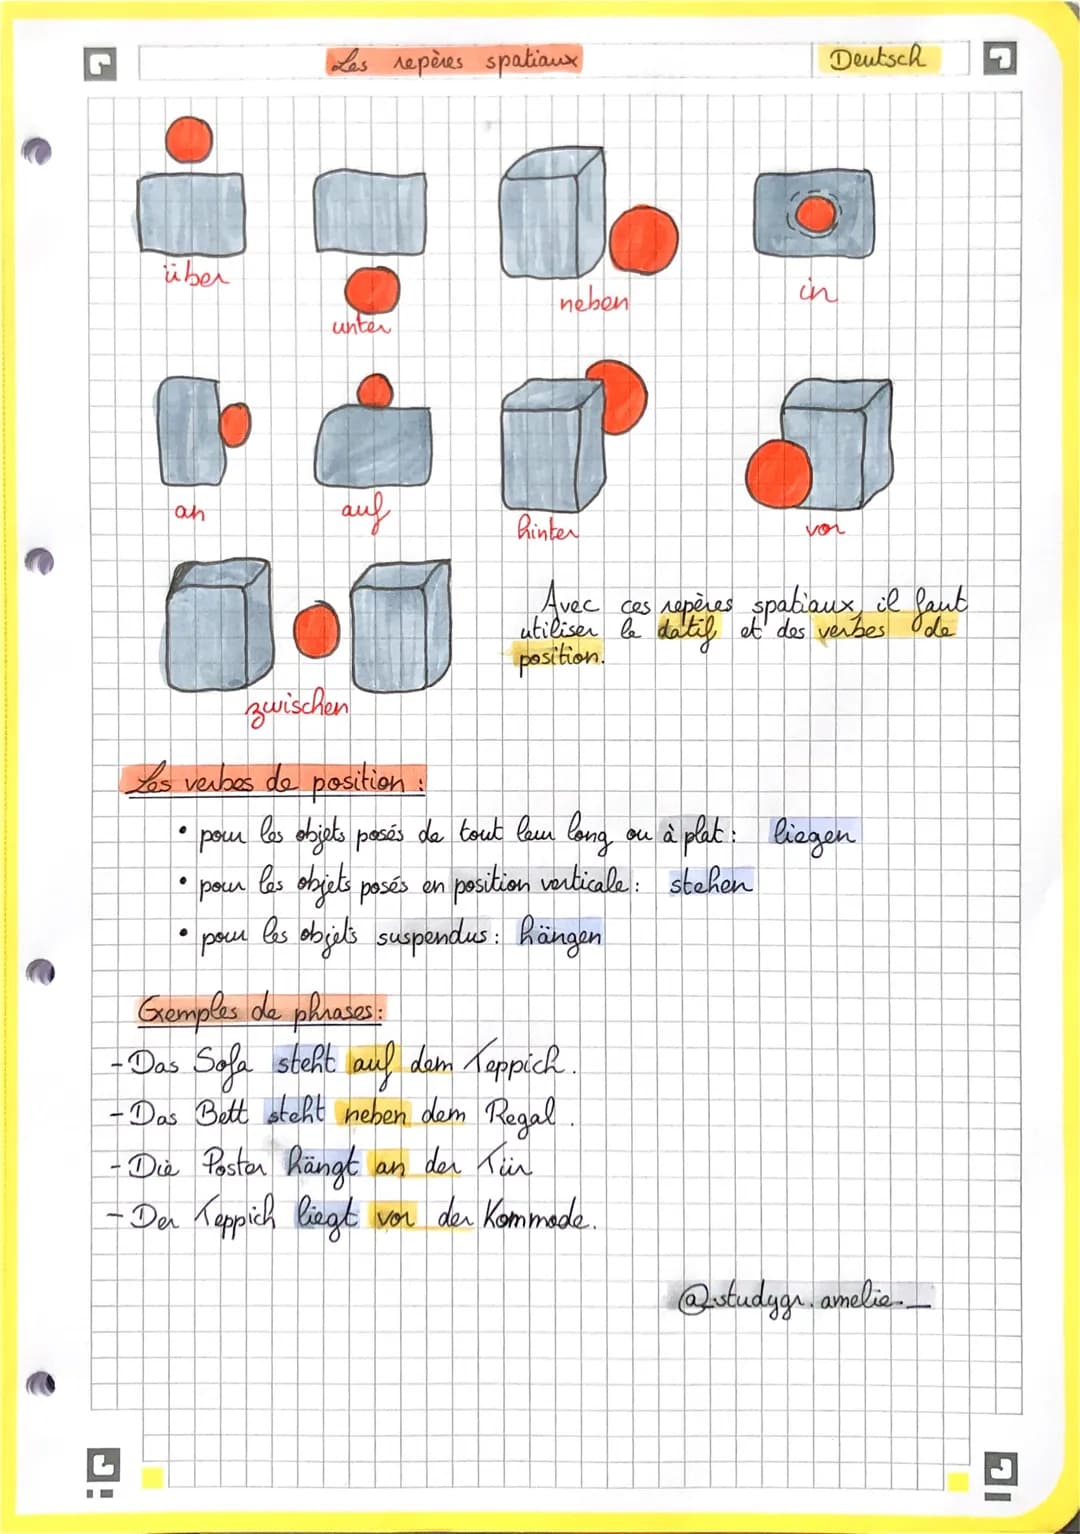 Les repères spatiaux
Deutsch
über
unter
neben
in
an
auf
hinter
vor
zwischen
Avec ces repères spatiaux, il faut
utiliser le datif et des verbes de
position.
Les verbes de position :
• pour les objets posés de tout leur long ou à plat : liegen
• pour les objets posés en position verticale : stehen
• pour les objets suspendus : hängen
Exemples de phrases :
- Das Sofa steht auf dem Teppich.
- Das Bett steht neben dem Regal.
- Die Poster hängt an der Tür
- Der Teppich liegt vor der Kommode.
@studygr.amelie._